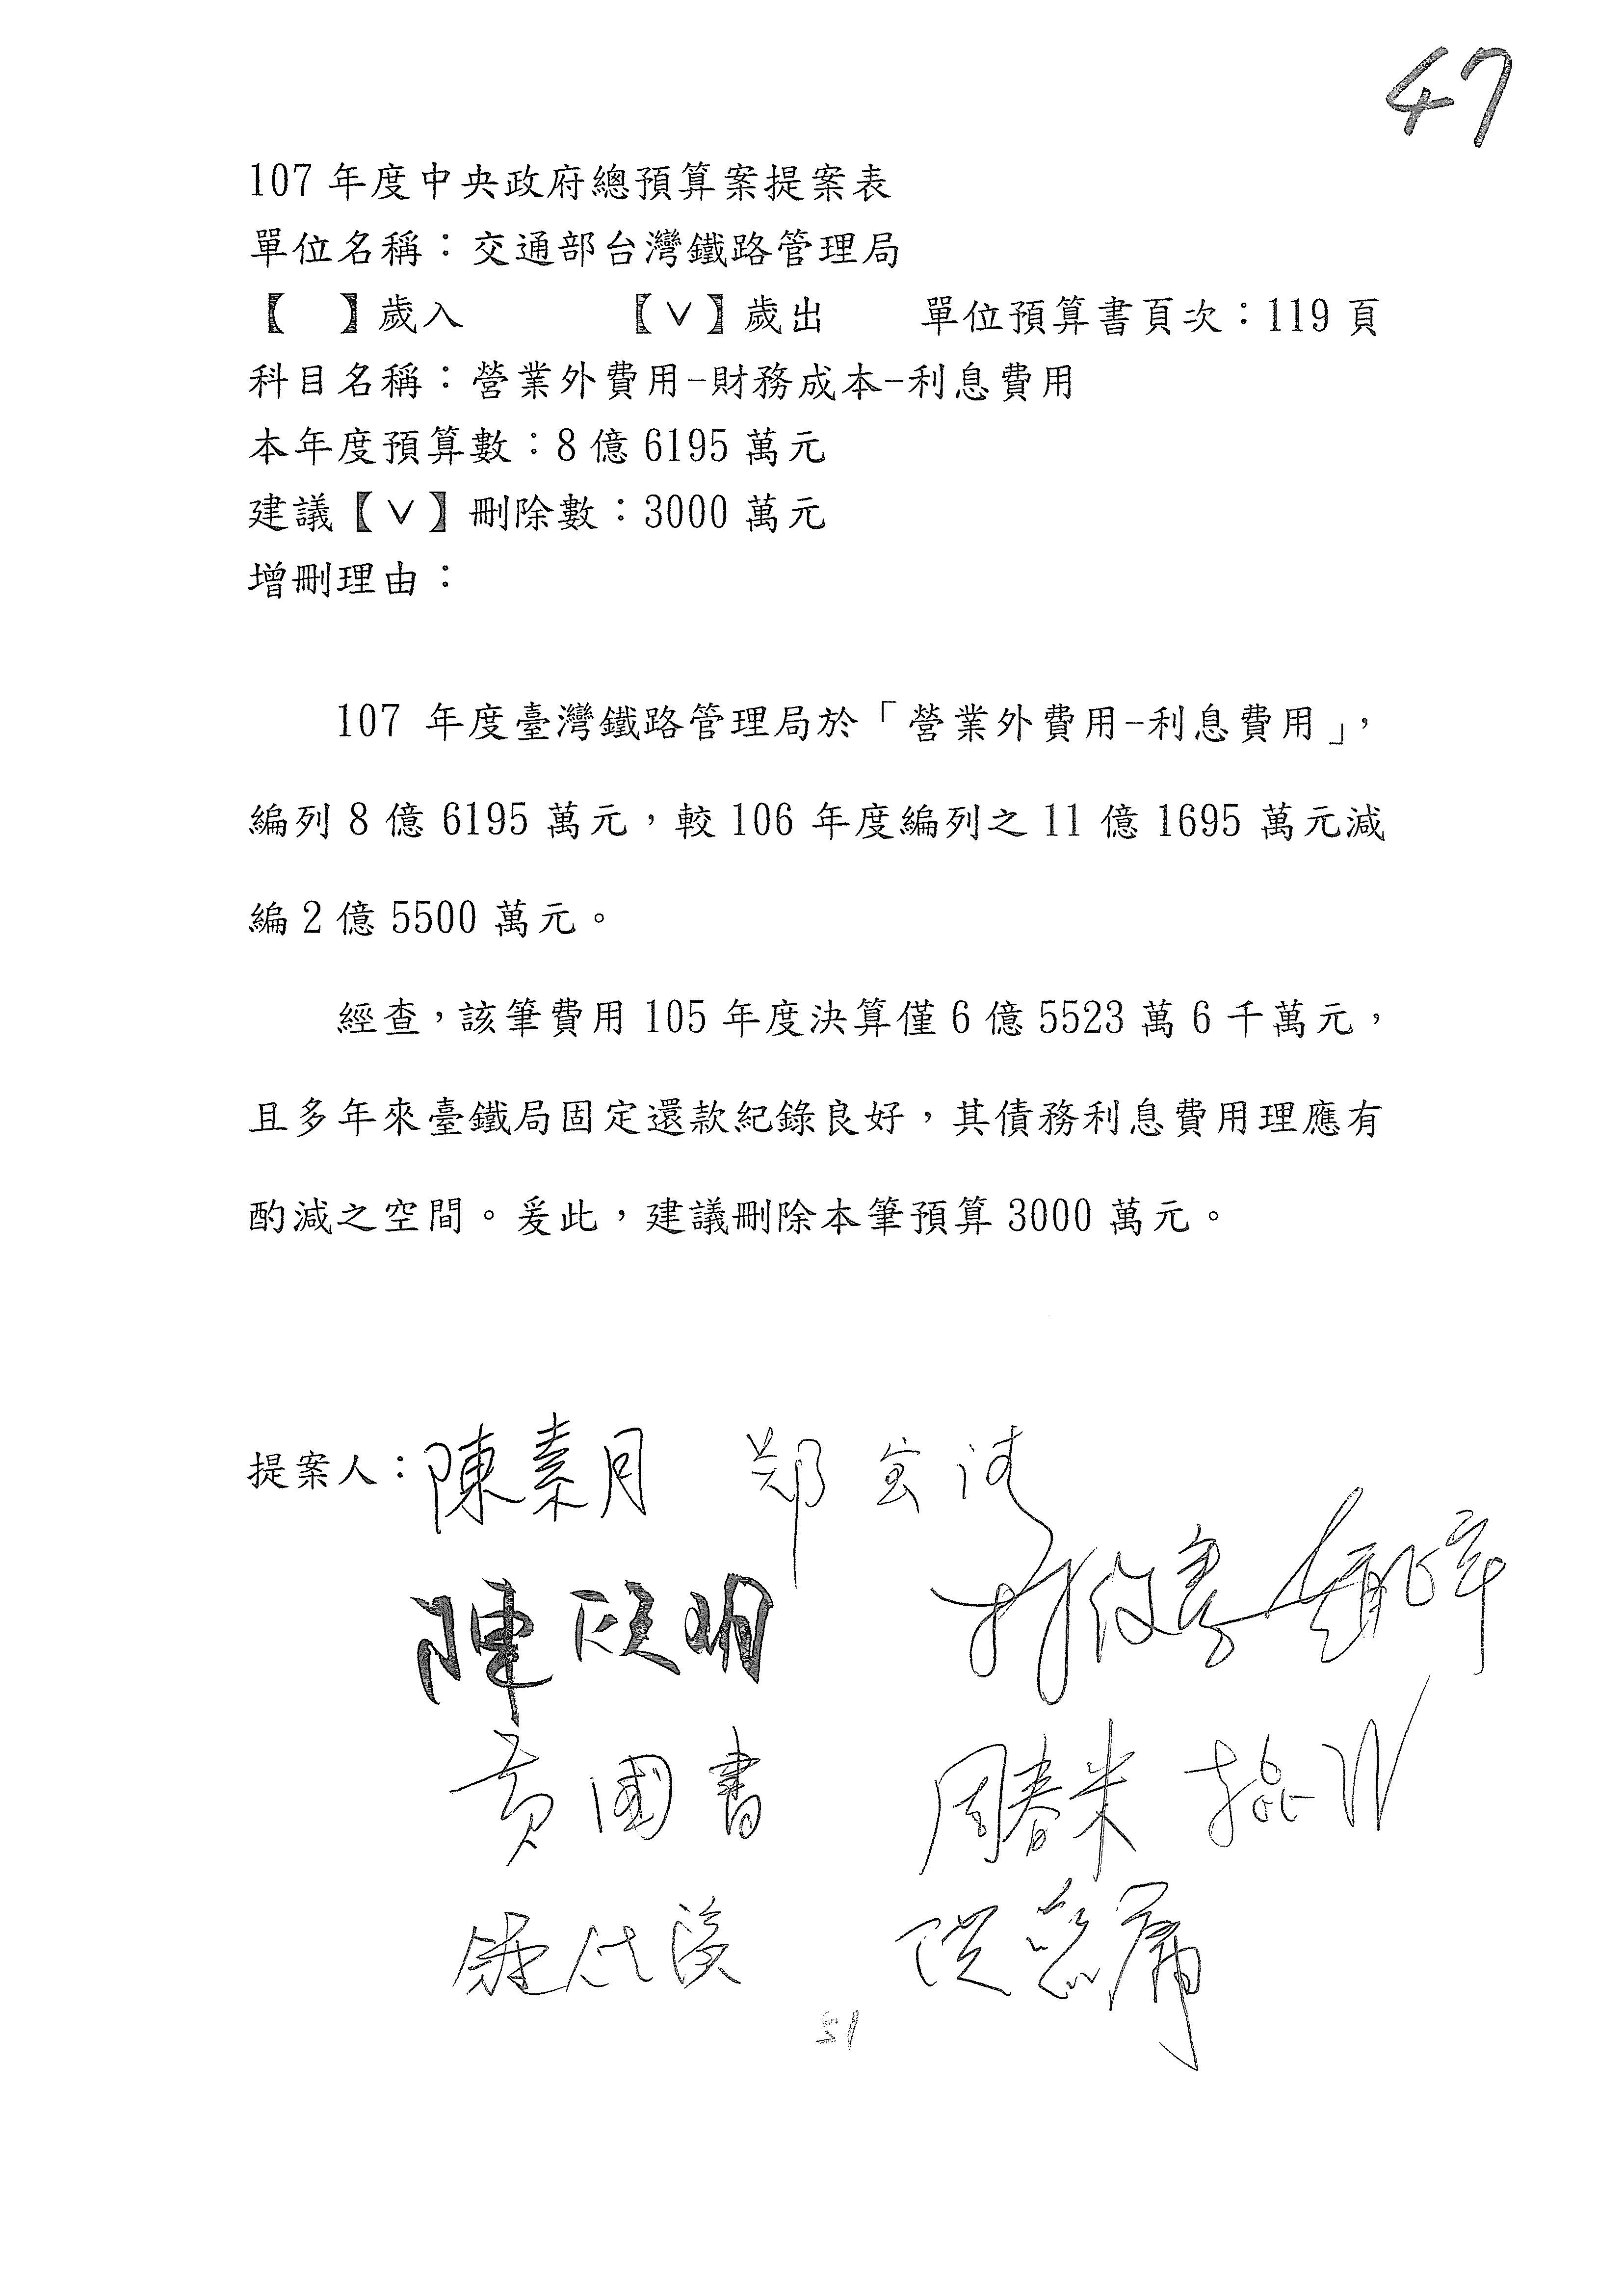 47
107 年度中央政府總預算案提案表
單位名稱：交通部台灣鐵路管理局
【　】歲入　【∨】歲出　單位預算書頁次：119 頁
科目名稱：營業外費用-財務成本-利息費用
本年度預算數：8 億 6195 萬元
建議【∨】刪除數：3000 萬元
增刪理由：
107 年度臺灣鐵路管理局於「營業外費用-利息費用」，
編列 8 億 6195 萬元，較 106 年度編列之 11 億 1695 萬元減
編 2 億 5500 萬元。
經查，該筆費用 105 年度決算僅 6 億 5523 萬 6 千萬元，
且多年來臺鐵局固定還款紀錄良好，其債務利息費用理應有
酌減之空間。爰此，建議刪除本筆預算 3000 萬元。
提案人：陳素月 鄭宝清
陳歐珀
黃國書 周春米
鍾佳濱
51